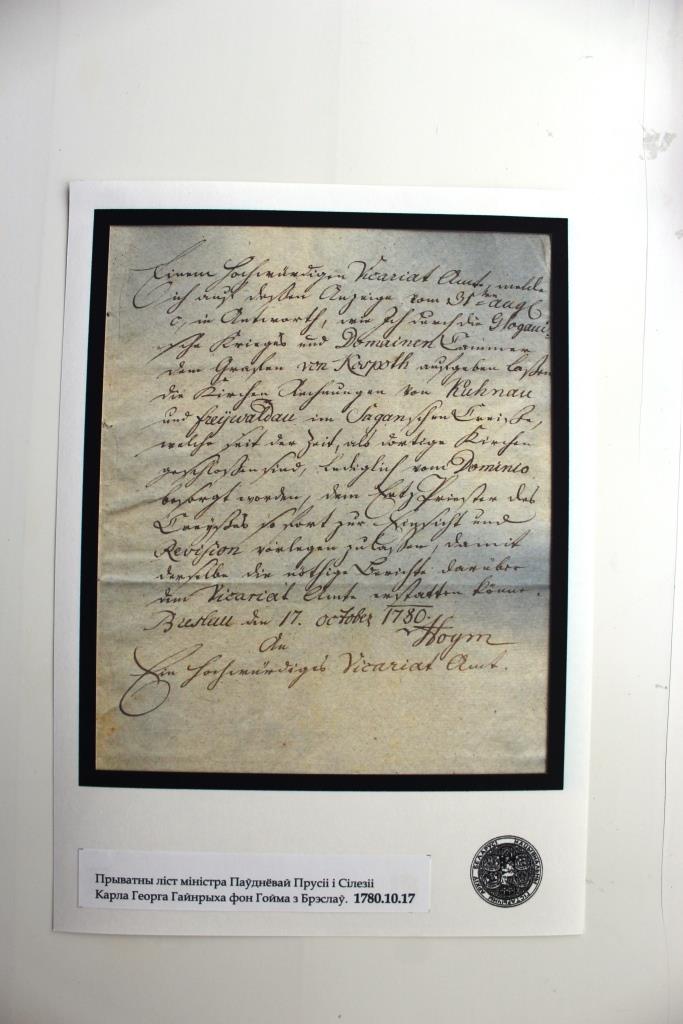 Einem Hochwürdigen Vicariat Amte, melde
Ich auf dessen Anzeige vom 31ten Aug
c, in Antworth, wie Ich durch die Glogaui-
sche Krieges und Domainen Cammer
dem Graffen von Kospoth aufgeben laßen
die Kirchen Rechnungen von Kuhnau
und Freÿwaldau im Saganschen Creiße,
welche seit der Zeit, als dortige Kirchen
geschlossen sind, lediglich vom Dominio
besorgt worden, dem Ertz Priester des
Creÿßes so fort zur Einsicht und
Revision vorlegen zu laßen, damit
derselbe die nöthige Berichte darüber
dem Vicariat Amte erstatten könne.
Breslau den 17. October 1780.
Hoym
An
Ein Hochwürdiges Vicariat Amt.
Прыватны ліст міністра Паўднёвай Прусіі і Сілезіі
Карла Георга Гайнрыха фон Гойма з Брэслаў. 1780.10.17